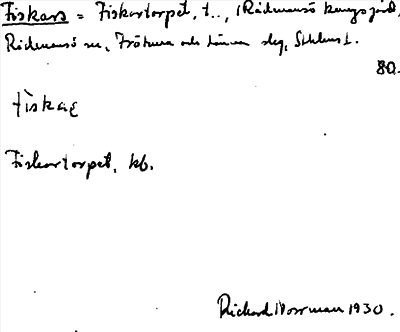 Fiskars = Fiskartorpet, t.., (Rådmansö kungsgård,
Rådmansö sn, Frötuna och Länna skg, Sthlms l.
80.
fiskaɛ
Fiskartorpet, kb.
Rickard Norrman 1930.